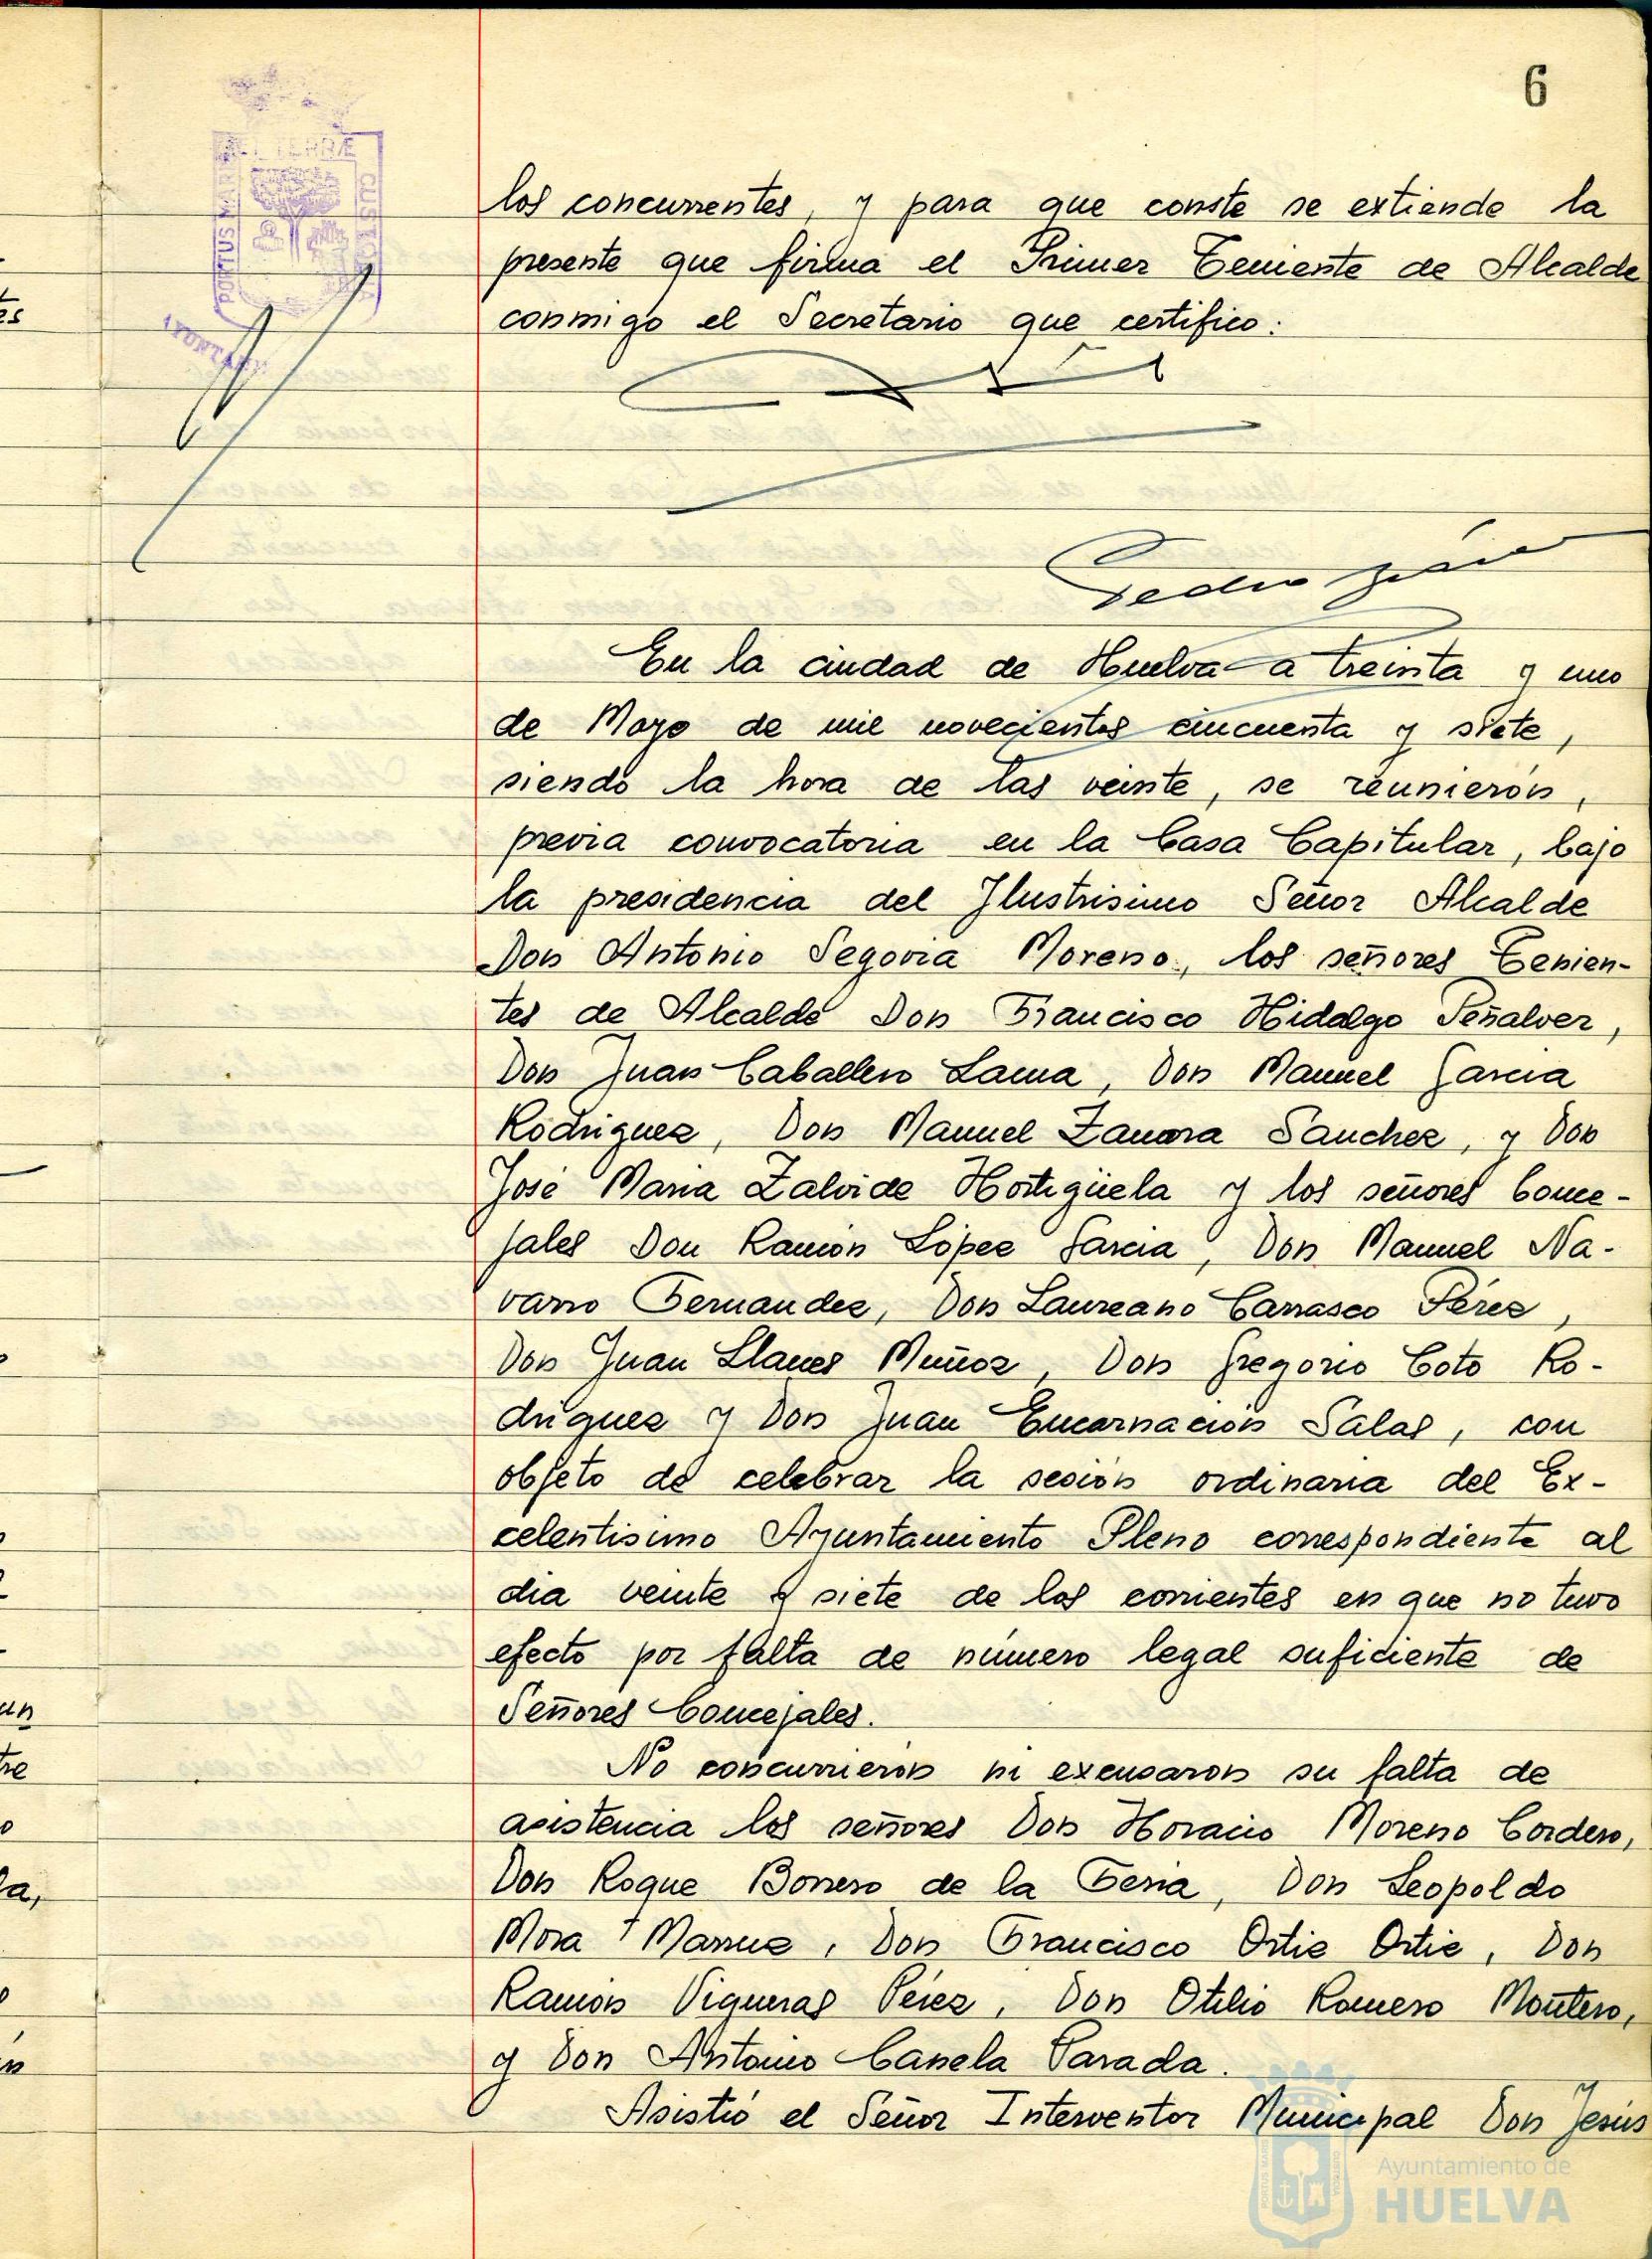 6
los concurrentes, y para que conste se extiende la
presente que firma el Primer Teniente de Alcalde
conmigo el Secretario que certifico:
En la ciudad de Huelva a treinta y uno
de Mayo de mil novecientos cincuenta y siete,
siendo la hora de las veinte, se reunieron,
previa convocatoria en la Casa Capitular, bajo
la presidencia del Ilustrisimo Señor Alcalde
Don Antonio Segovia Moreno, los señores Tenien-
tes de Alcalde Don Francisco Hidalgo Peñalver,
Don Juan Caballero Lama, Don Manuel Garcia
Rodriguez, Don Manuel Zamora Sanchez, y Don
José Maria Zalvide Hortigüela y los señores Conce-
jales Don Ramón López Garcia, Don Manuel Na-
varro Fernandez, Don Laureano Carrasco Pérez,
Don Juan Llanes Muñoz, Don Gregorio Coto Ro-
driguez y Don Juan Encarnación Salas, con
objeto de celebrar la sesión ordinaria del Ex-
celentisimo Ayuntamiento Pleno correspondiente al
dia veinte y siete de los corrientes en que no tuvo
efecto por falta de número legal suficiente de
Señores Concejales.
No concurrieron ni excusaron su falta de
asistencia los señores Don Horacio Moreno Cordero,
Don Roque Borrero de la Feria, Don Leopoldo
Mora Marruz, Don Francisco Ortiz Ortiz, Don
Ramón Vigueras Pérez, Don Otilio Romero Montero,
y Don Antonio Canela Parada.
Asistió el Señor Interventor Municipal Don Jesús
PORTUS MARIS
ET TERRÆ
CUSTODIA
Ayuntamiento de
HUELVA